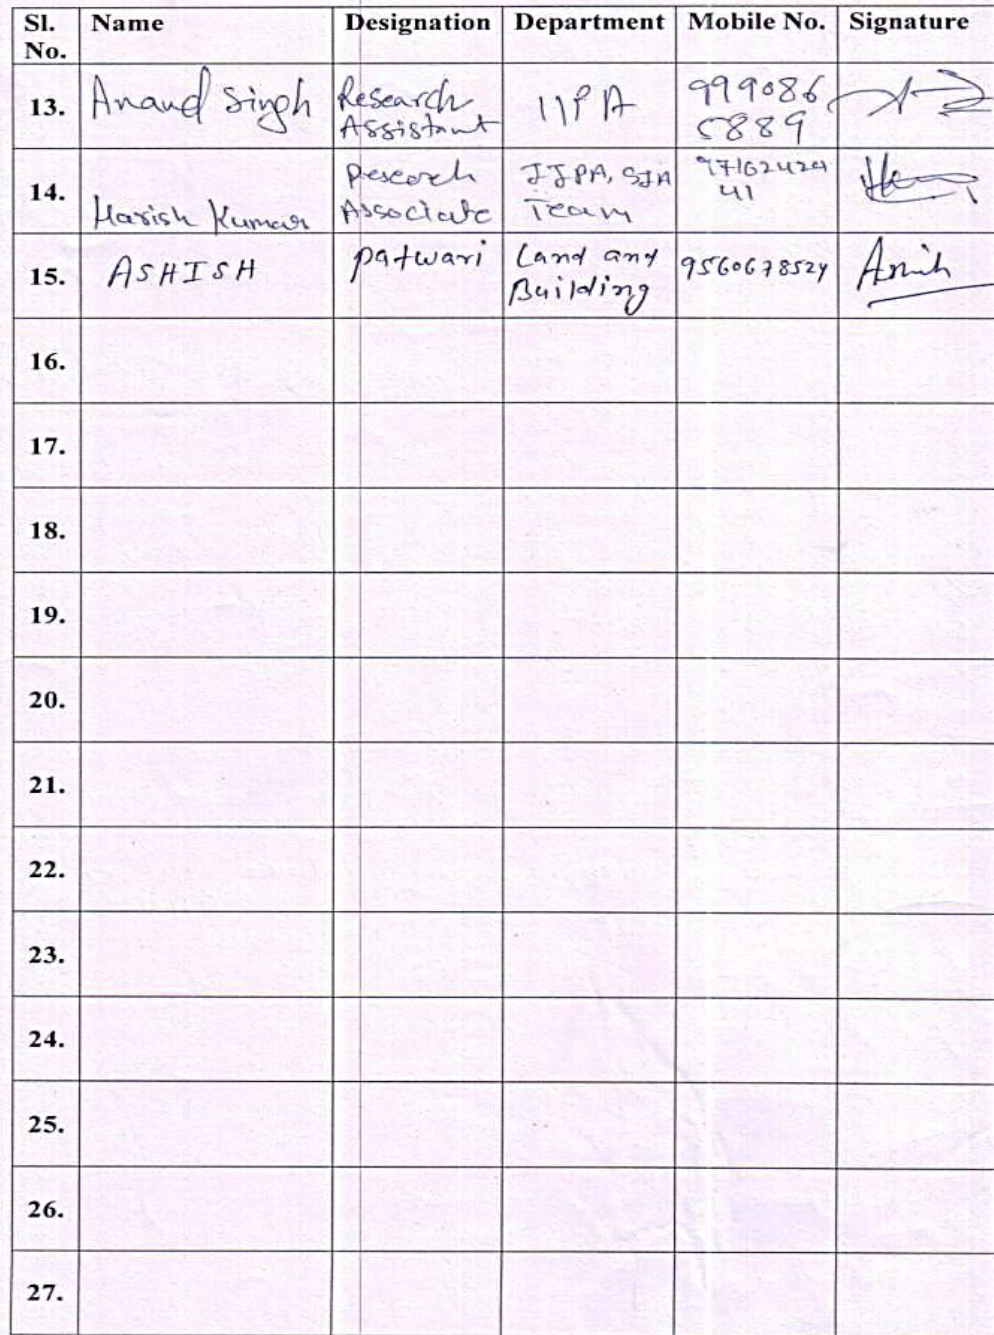 Sl. No. Name Designation Department Mobile No. Signature
13. Anand Singh Research Assistant IIPA 999086 5889
14. Harish Kumar Research Associate IIPA, SIA Team 97162424 41
15. ASHISH patwari Land and Building 9560678524 Ashish
16.
17.
18.
19.
20.
21.
22.
23.
24.
25.
26.
27.